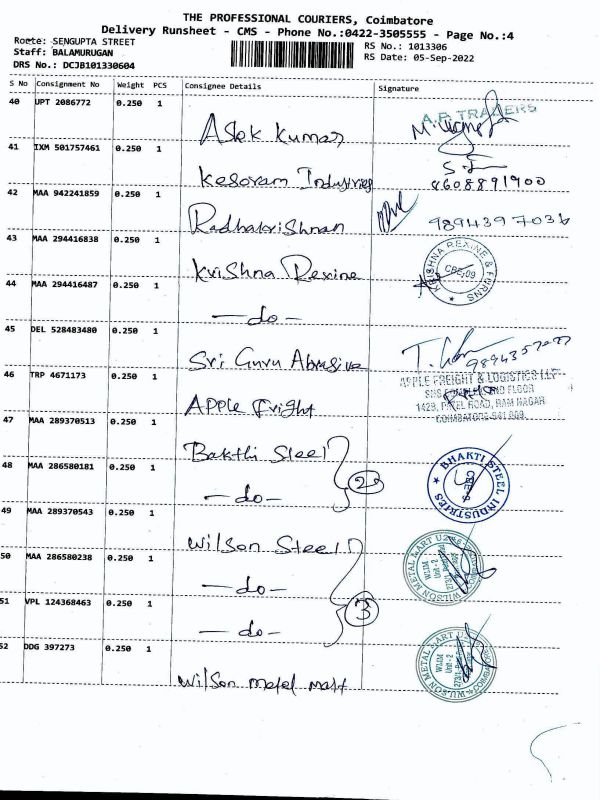 THE PROFESSIONAL COURIERS, Coimbatore
Delivery Runsheet - CMS - Phone No.:0422-3505555 - Page No.:4
Route: SENGUPTA STREET
Staff: BALAMURUGAN
DRS No.: DCJB101330604
RS No.: 1013306
RS Date: 05-Sep-2022
S No Consignment No Weight PCS Consignee Details Signature
40 UPT 2086772 0.250 1 Asok Kumar A.P. TRADERS
41 IXM 501757461 0.250 1 Kesoram Industries 8608891900
42 MAA 942241859 0.250 1 Radhakrishnan 9894397036
43 MAA 294416838 0.250 1 Krishna Rexine KRISHNA REXINE & FURNS CBE-09
44 MAA 294416487 0.250 1 -do-
45 DEL 528483480 0.250 1 Sri Guru Abrasive
46 TRP 4671173 0.250 1 Apple Fright APPLE FREIGHT & LOGISTICS LLP
1429, PATEL ROAD, RAM NAGAR
47 MAA 289370513 0.250 1 Bakthi Steel
48 MAA 286580181 0.250 1 -do- 2 BHAKTI STEEL INDUSTRIES
49 MAA 289370543 0.250 1 Wilson Steel
50 MAA 286580238 0.250 1 -do- WILSON METAL MART
51 VPL 124368463 0.250 1 -do- 3
52 DDG 397273 0.250 1 Wilson metel mart WILSON METAL MART